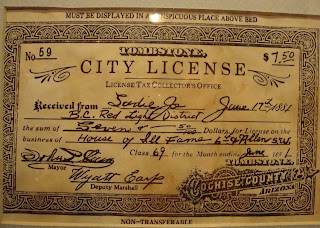 MUST BE DISPLAYED IN A CONSPICUOUS PLACE ABOVE BED
TOMBSTONE,
No 59
$7.50
CITY LICENSE
LICENSE TAX COLLECTOR'S OFFICE
Received from Sadie Jo June 17th 1881
B.C. Red Light District
the sum of Seven & 50/100 Dollars, for License on the
business of House of Ill Fame 6th & Allen St.
Class 69 for the Month ending June 1881
Mayor
Wyatt Earp
Deputy Marshall
TOMBSTONE,
COCHISE COUNTY,
ARIZONA
NON-TRANSFERABLE